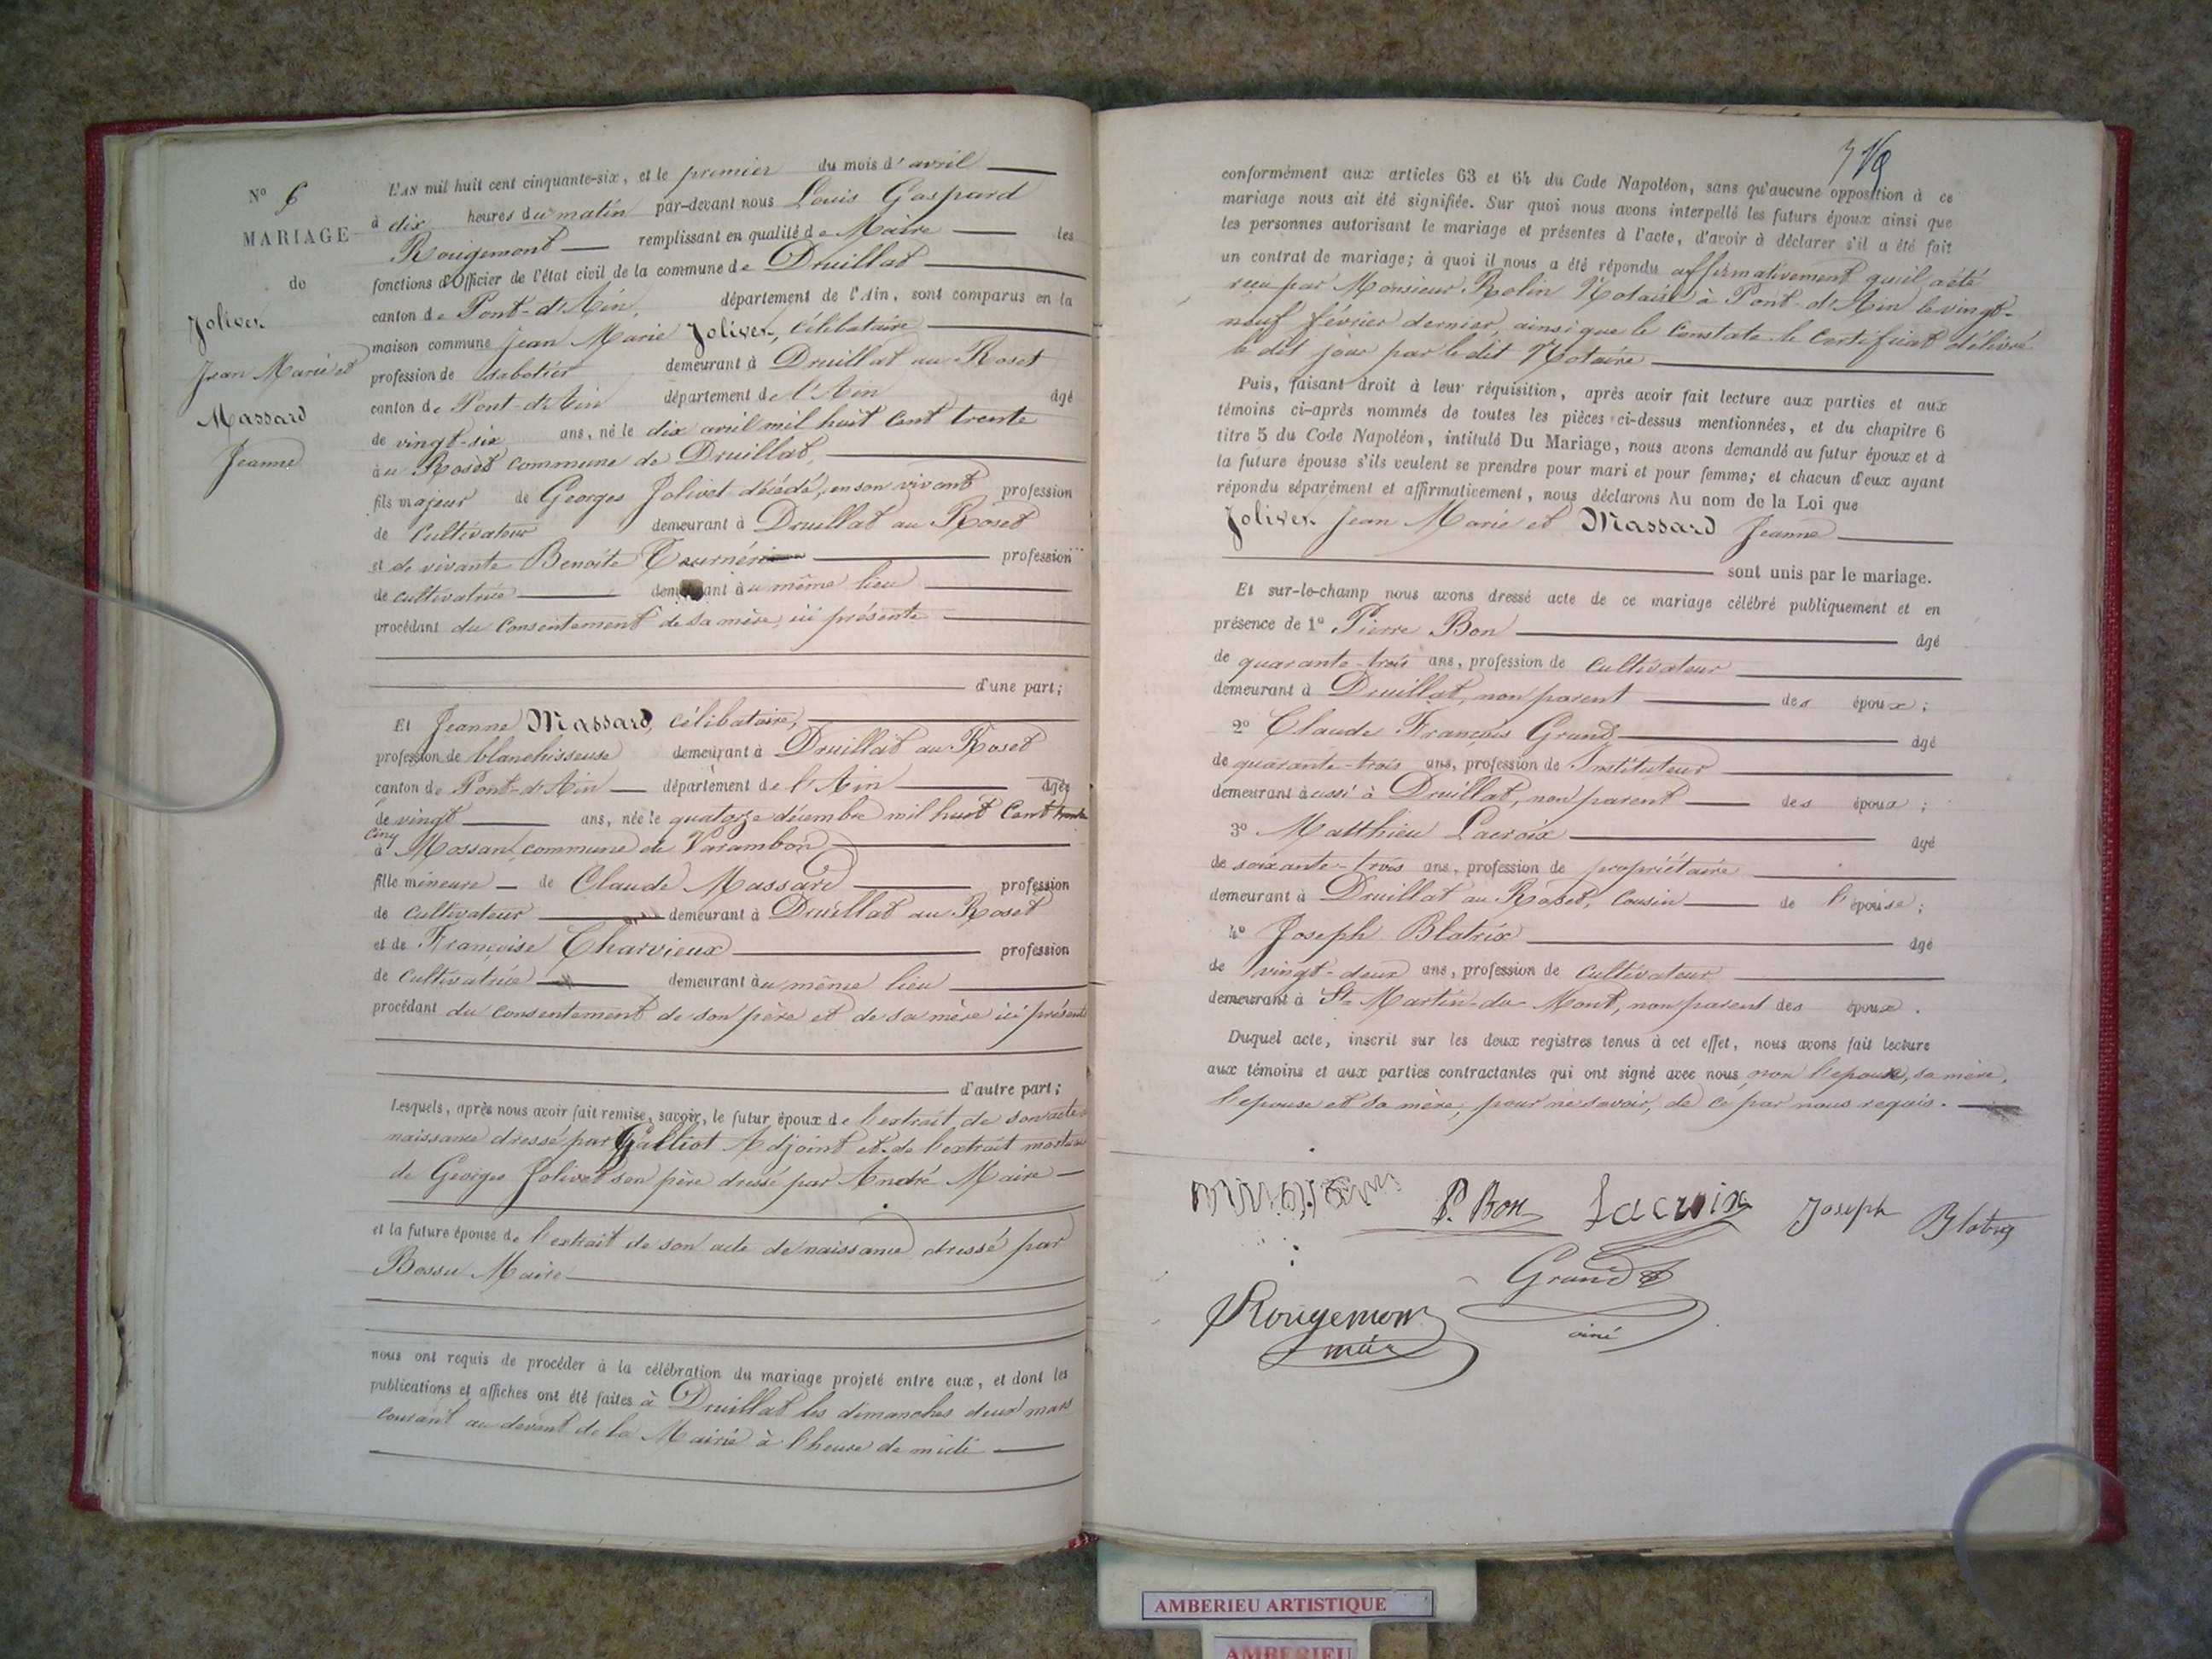 N° 6
MARIAGE
de
Jolivet
Jean Marie et
Massard
Jeanne
L'AN mil huit cent cinquante-six, et le premier du mois d'avril
à dix heures du matin par-devant nous Louis Gaspard
Rougemont remplissant en qualité de Maire les
fonctions d'Officier de l'état civil de la commune de Druillat
canton de Pont-d'Ain, département de l'Ain, sont comparus en la
maison commune Jean Marie Jolivet, célibataire
profession de sabotier demeurant à Druillat au Roset
canton de Pont-d'Ain département de l'Ain âgé
de vingt-six ans, né le dix avril mil huit cent trente
au Roset commune de Druillat,
fils majeur de Georges Jolivet décédé, en son vivant profession
de Cultivateur demeurant à Druillat au Roset
et de vivante Benoîte profession
de cultivatrice demeurant au même lieu
procédant du consentement de sa mère, ici présente
d'une part;
Et Jeanne Massard, célibataire,
profession de blanchisseuse demeurant à Druillat au Roset
canton de Pont-d'Ain département de l'Ain âgée
de vingt ans, née le quatorze décembre mil huit cent trente
cinq
à Mossan, commune de Varambon
fille mineure de Claude Massard profession
de cultivateur demeurant à Druillat au Roset
et de Françoise Charvieux profession
de cultivatrice demeurant au même lieu
procédant du consentement de son père et de sa mère ici présents
d'autre part;
Lesquels, après nous avoir fait remise, savoir, le futur époux de l'extrait de son acte de
naissance dressé par Galliot Adjoint et de l'extrait mortuaire
de Georges Jolivet son père dressé par André Maire
et la future épouse de l'extrait de son acte de naissance dressé par
Bossu Maire
nous ont requis de procéder à la célébration du mariage projeté entre eux, et dont les
publications et affiches ont été faites à Druillat les dimanches deux mars
courant au devant de la Mairie à l'heure de midi
conformément aux articles 63 et 64 du Code Napoléon, sans qu'aucune opposition à ce
mariage nous ait été signifiée. Sur quoi nous avons interpellé les futurs époux ainsi que
les personnes autorisant le mariage et présentes à l'acte, d'avoir à déclarer s'il a été fait
un contrat de mariage; à quoi il nous a été répondu affirmativement qu'il a été
reçu par Monsieur Rolin Notaire à Pont-d'Ain le vingt-
neuf février dernier, ainsi que le constate le certificat délivré
le dit jour par le dit Notaire
Puis, faisant droit à leur réquisition, après avoir fait lecture aux parties et aux
témoins ci-après nommés de toutes les pièces ci-dessus mentionnées, et du chapitre 6
titre 5 du Code Napoléon, intitulé Du Mariage, nous avons demandé au futur époux et à
la future épouse s'ils veulent se prendre pour mari et pour femme; et chacun d'eux ayant
répondu séparément et affirmativement, nous déclarons Au nom de la Loi que
Jolivet Jean Marie et Massard Jeanne
sont unis par le mariage.
Et sur-le-champ nous avons dressé acte de ce mariage célébré publiquement et en
présence de 1° Pierre Bon âgé
de quarante-trois ans, profession de cultivateur
demeurant à Druillat, non parent des époux;
2° Claude François Grand âgé
de quarante-trois ans, profession de Instituteur
demeurant aussi à Druillat, non parent des époux;
3° Matthieu Lacroix âgé
de soixante-trois ans, profession de propriétaire
demeurant à Druillat au Roset, cousin de l'épouse;
4° Joseph Blatrix âgé
de vingt-deux ans, profession de cultivateur
demeurant à St Martin-du-Mont, non parent des époux.
Duquel acte, inscrit sur les deux registres tenus à cet effet, nous avons fait lecture
aux témoins et aux parties contractantes qui ont signé avec nous non l'époux, sa mère,
l'épouse et sa mère, pour ne savoir, de ce par nous requis.
P. Bon Lacroix Joseph Blatrix
Grand
Rougemont
AMBERIEU ARTISTIQUE
AMBERIEU